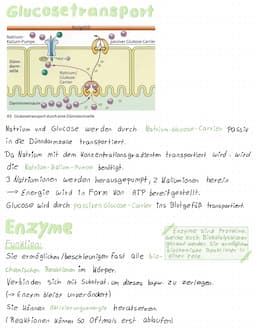 Glucosetransport
Natrium-Kalium-Pumpe
passiver Glucose-Carrier
Dünndarmzelle
Natrium/Glucose-Carrier
Dünndarminnenraum
Glucosetransport durch eine Dünndarmzelle
Natrium und Glucose werden durch Natrium-Glucose-Carrier passiv
in die Dünndarmzelle transportiert.
Da Natrium mit dem Konzentrationsgradienten transportiert wird, wird
die Natrium-Kalium-Pumpe benötigt.
3 Natriumionen werden herausgepumpt, 2 Kaliumionen herein
→ Energie wird in Form von ATP bereitgestellt.
Glucose wird durch passiven Glucose-Carrier ins Blutgefäß transportiert.
Enzyme
Enzyme sind Proteine,
welche auch Biokatalysatoren
genannt werden. Sie ermöglichen
biochemische Reaktionen in
einer Zelle.
Funktion:
Sie ermöglichen/beschleunigen fast alle bio-
chemischen Reaktionen im Körper.
Verbinden sich mit Substrat, um dieses bspw. zu zerlegen.
(→ Enzym bleibt unverändert)
Sie können Aktivierungsenergie herabsetzen
(Reaktionen können so oftmals erst ablaufen)